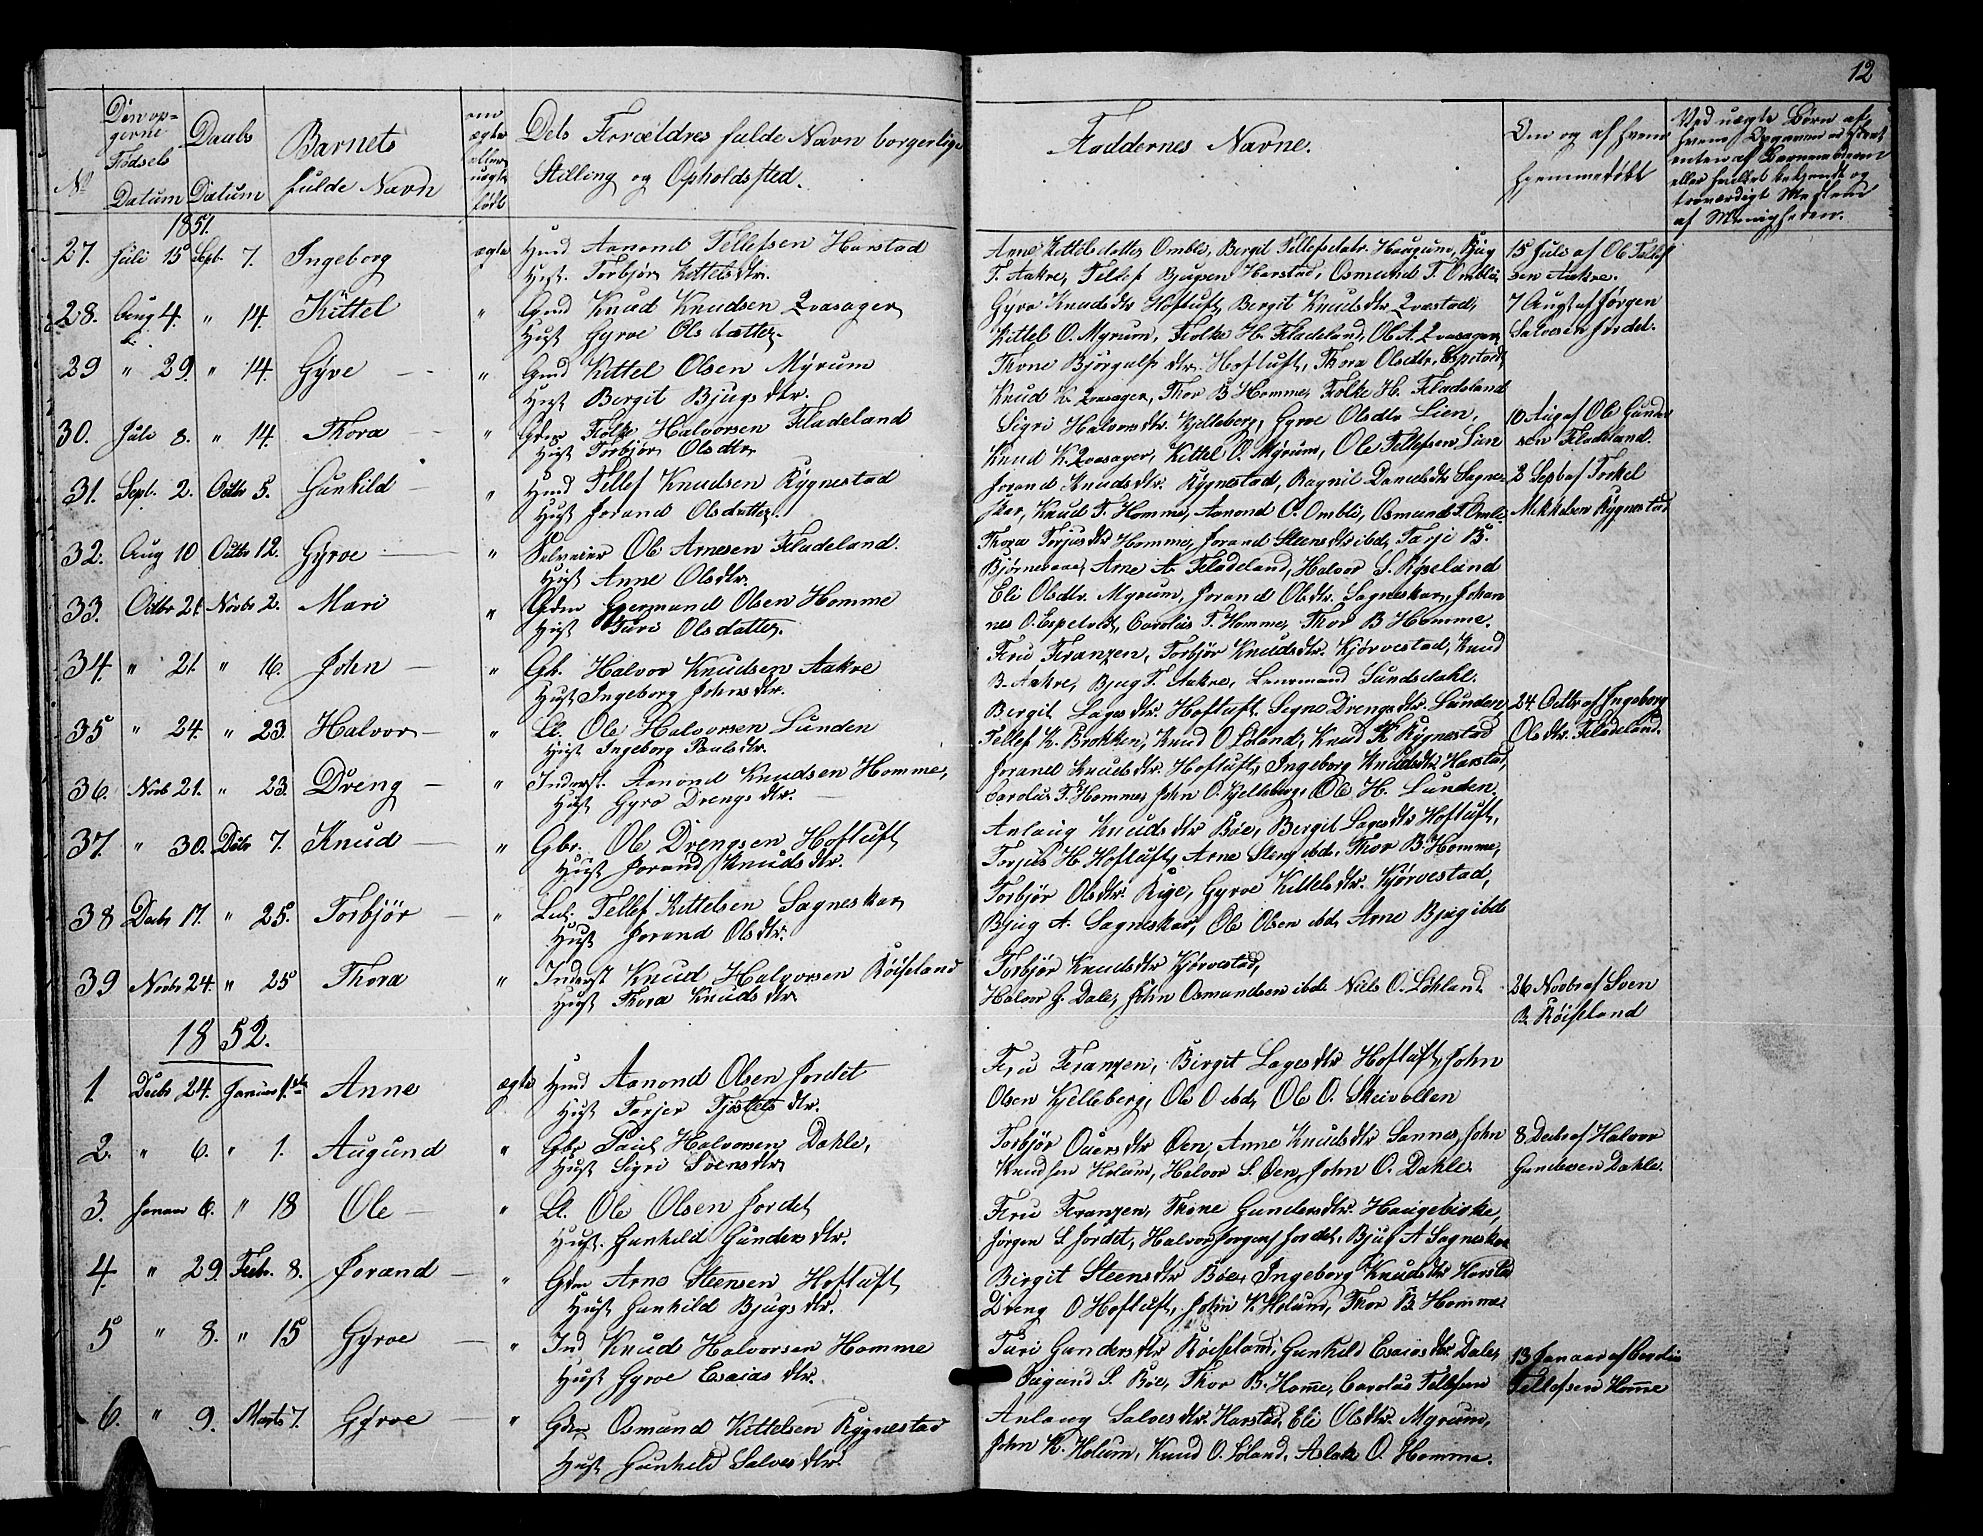 12
No
Den op-
givne
Fødsels
Datum
Daabs
Datum
Barnets
fulde Navn
om
ægte
eller
uægte
født
Dets Forældres fulde Navn borgerlige
Stilling og Opholdsted.
Faddernes Navne.
Om og af hvem
hjemmedøbt
Ved uægte Børn af
hvem Opgaven er skeet
enten af Barnemoderen
eller hvilket bekjendt og
troværdigt Medlem
af Menigheden.
1851.
27. Juli 15 Sept. 7. Ingeborg ægte Hmd Aanond Tellefsen Harstad
Hust. Torbjør Kittelsdtr.
Anne Kittilsdatter Omble, Birgit Tellefsdatr. Haugum, Bjug
T. Aakre, Tellef Bjugsen Harstad, Osmund T. Omble
15 Juli af Ole Tellef
sen Aakre.
28. Aug 4. " 14. Kittel " Gmd Knud Knudsen Qvasager
Hust Gyroe Olsdatter.
Gyro Knudsdtr Hofluft, Bergit Knudsdtr Qvestad,
Kittel O. Myrum, Folke H. Fladeland, Ole A. Qvasager
7 Augt af Jørgen
Salvesen Jordet.
29 " 29. " 14. Gyve " Gmd Kittel Olsen Myrum
Hust Bergit Bjugsdtr.
Thone Bjørgulfsdtr. Hofluft, Thora Olsdtr. Espetvedt,
Knud K. Qvasager, Thor B Homme, Folke H. Fladeland
30. Juli 8. " 14. Thora " Gdm Folke Halvorsen Fladeland
Hust Torbjør Olsdtr
Sigri Halvorsdtr. Kjelleberg, Gyroe Olsdtr Lien,
Knud K. Qvasager, Kittel O. Myrum, Ole Tellefsen Lien
10 Aug af Ole Gunder
sen Fladeland.
31. Sept. 2. Octbr 5. Gunhild " Hmd Tellef Knudsen Rygnestad
Hust Jorand Olsdatter.
Jorand Knudsdtr. Rygnestad, Ragnil Danielsdtr Sagnes
skar, Knud T. Homme, Aanond O. Omble, Osmund T. Omle
2 Sept af Torkel
Mikkelsen Rygnestad
32. Aug 10 Octbr 12. Gyroe " Selveier Ole Arnesen Fladeland.
Hust Anne Olsdtr.
Thora Torjusdtr Homme, Jorand Steensdtr ibd, Tarje B.
Bjørnevaae, Arne A. Fladeland, Halvor S. Ryseland
33. Octbr 21. Novbr 2. Mari " Gdm Germund Olsen Homme
Hust Turi Olsdatter.
Eli Olsdtr. Myrum, Jorand Olsdtr. Sagneskar, Johan
nes O. Espetvedt, Carolus T. Homme, Thor B Homme.
34. " 21. " 16. John " Gb. Halvor Knudsen Aakre
Hust Ingeborg Johnsdtr.
Fru Franzen, Torbjør Knudsdtr. Kjørvestad, Knud
B. Aakre, Bjug T. Aakre, Lensmand Sundsdahl.
35 " 24. " 23. Halvor " Ll. Ole Halvorsen Lunden
Hust Ingeborg Paulsdtr.
Bergit Lagesdtr. Hofluft. Signe Drengsdtr. Lunden
Tellef K. Brokken, Knud O Løland, Knud K Rygnestad
24 Octbr af Ingeborg
Olsdtr. Fladeland.
36. Novb 21. " 23. Dreng " Inderst. Aanond Knudsen Homme,
Hust Gyro Drengsdtr.
Jorand Knudsdtr. Hofluft, Ingeborg Knudsdtr Harstad,
Carolus T. Homme, John O. Kjelleberg, Ole H. Lunden.
37. " 30. Decbr 7. Knud " Gbr. Ole Drengsen Hofluft
Hust Jorand Knudsdtr.
Anlaug Knudsdtr Bøe, Bergit Lagesdtr Hofluft,
Torjus H Hofluft, Arne Stens ibd. Thor B. Homme,
38 Decbr 17. " 25. Torbjør " Tellef Kittelsen Sagneskar
Hust Jorand Olsdtr.
Torbjør Olsdtr. Rige, Gyroe Kittelsdtr. Kjørvestad,
Bjug A. Sagneskar, Ole Olsen ibd, Arne Bjug ibd
39 Novbr 24. " 25 Thora " Inderst Knud Halvorsen Røisland
Hust Thora Knudsdtr
Torbjør Knudsdtr Kjørvestad,
Halvor G. Dale, John Osmundsen ibd. Niels O. Løhland.
26 Novbr af Sven
B. Røisland
1852.
1. Decbr 24. Januar 1ste Anne ægte Hmd Aanond Olsen Jordet
Hust Torjer Tjøstelsdtr.
Fru Franzen, Birgit Lagesdtr Hofluft, John
Olsen Kjelleberg, Ole O ibd, Ole O. Skeivollen
2. " 6. " 1. Augund " Gbr Paul Halvorsen Dahle,
Hust Sigri Svensdtr
Torbjør Ouersdtr Øen, Anne Knudsdtr Sannes, John
Knudsen Holum, Halvor S. Øen, John O. Dahle
8 Decbr af Halvor
Gundersen Dahle.
3. Januar 6. " 18 Ole " Ll. Ole Olsen Jordet
Hust. Gunhild Gundersdtr.
Fru Franzen, Thone Gundersdtr. Haugebirke,
Jørgen S Jordet, Halvor Jørgens Jordet, Bjug A Sagneskar
4. " 29. Febr. 8. Jorand " Gdm Arne Steensen Hofluft
Hust Gunhild Bjugsdtr.
Birgit Steensdtr Bøe, Ingeborg Knudsdtr Harstad
Dreng O Hofluft, John K Holum, Thor B. Homme
5 " 8. " 15 Gyroe " Ind Knud Halvorsen Homme
Hust Gyroe Esaiasdtr.
Turi Gundersdtr Røisland, Gunhild Esaiasdtr. Dale,
Augund S. Bøe, Thor B. Homme, Carolus Tellefsen
13 Januar af Carolus
Tellefsen Homme
6. " 9. Marts 7. Gyroe " Gdm Osmund Kittelsen Rygnestad
Hust Gunhild Salvesdtr.
Anlaug Salvesdtr. Harstad, Eli Olsdtr. Myrum,
John K. Holum, Knud O. Løland, Aslak O. Homme.